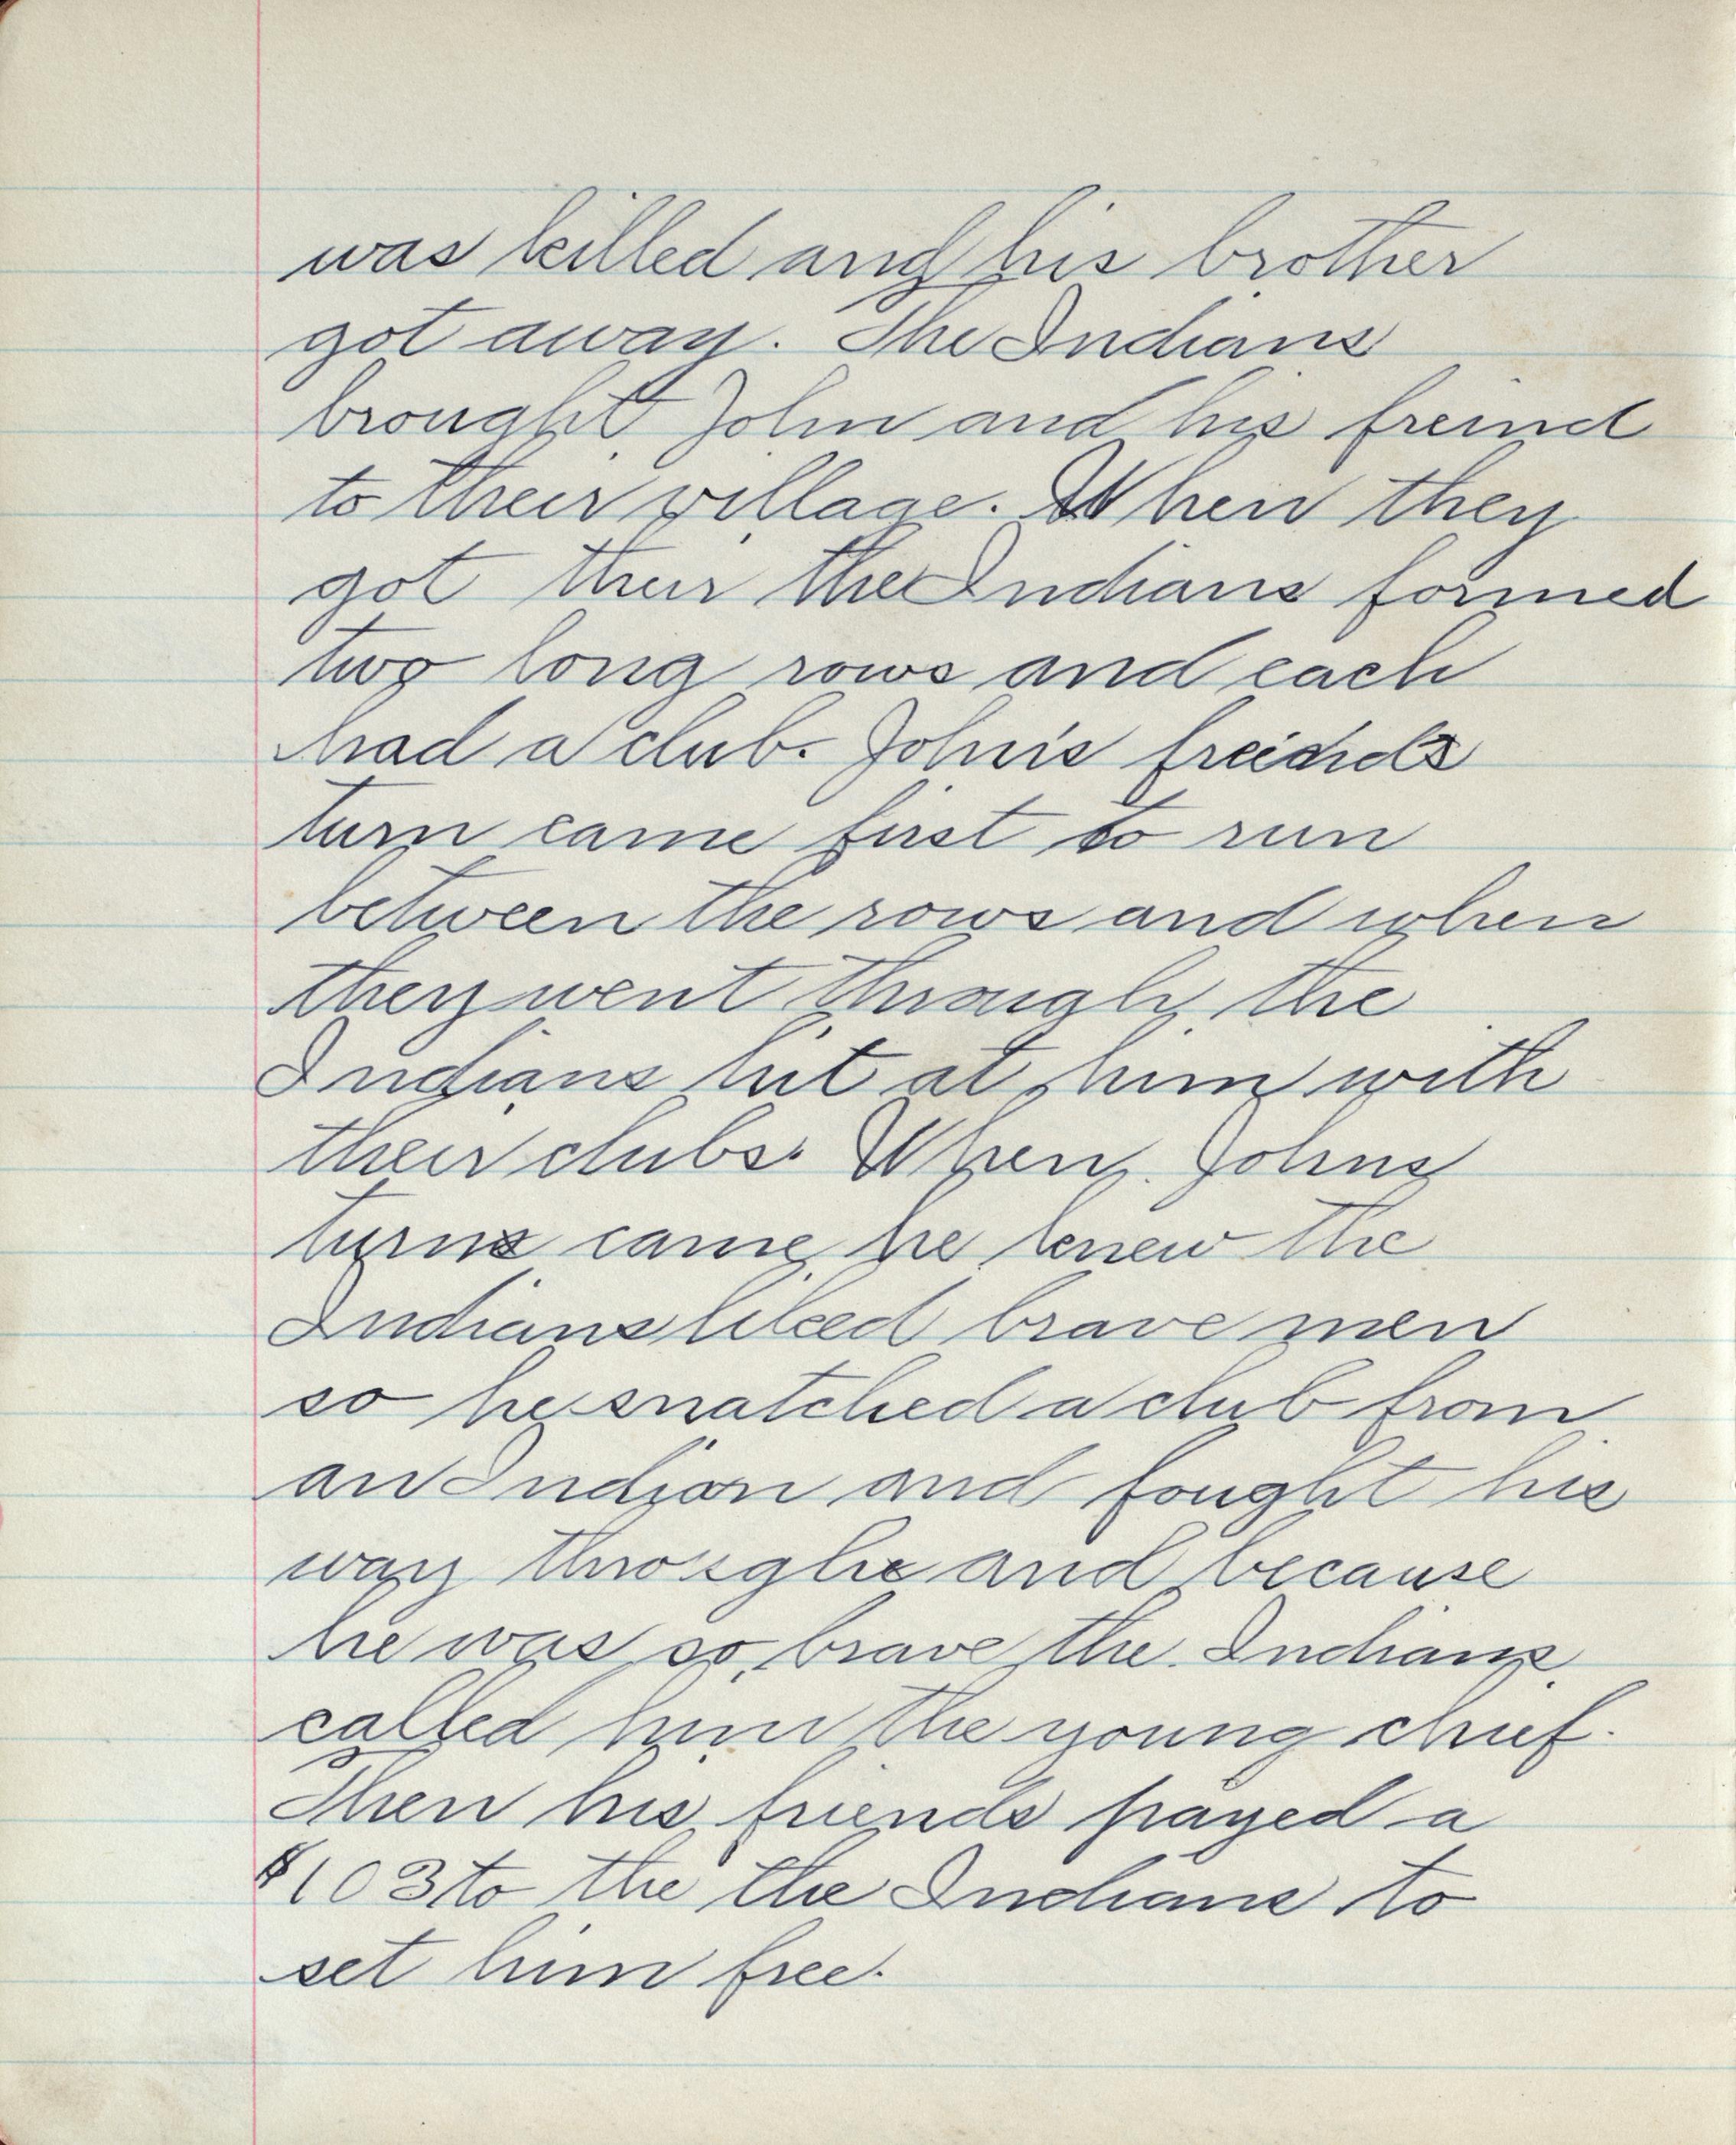 was killed and his brother
got away. The Indians
brought John and his freind
to their village. When they
got their the Indians formed
two long rows and each
had a club. John's freinds
turn came first to run
between the rows and when
they went through the
Indians hit at him with
their clubs. When Johns
turn came he knew the
Indians liked brave men
so he snatched a club from
an Indian and fought his
way through and because
he was so brave the Indians
called him the young chief.
Then his friends payed a
$103 to the the Indians to
set him free.